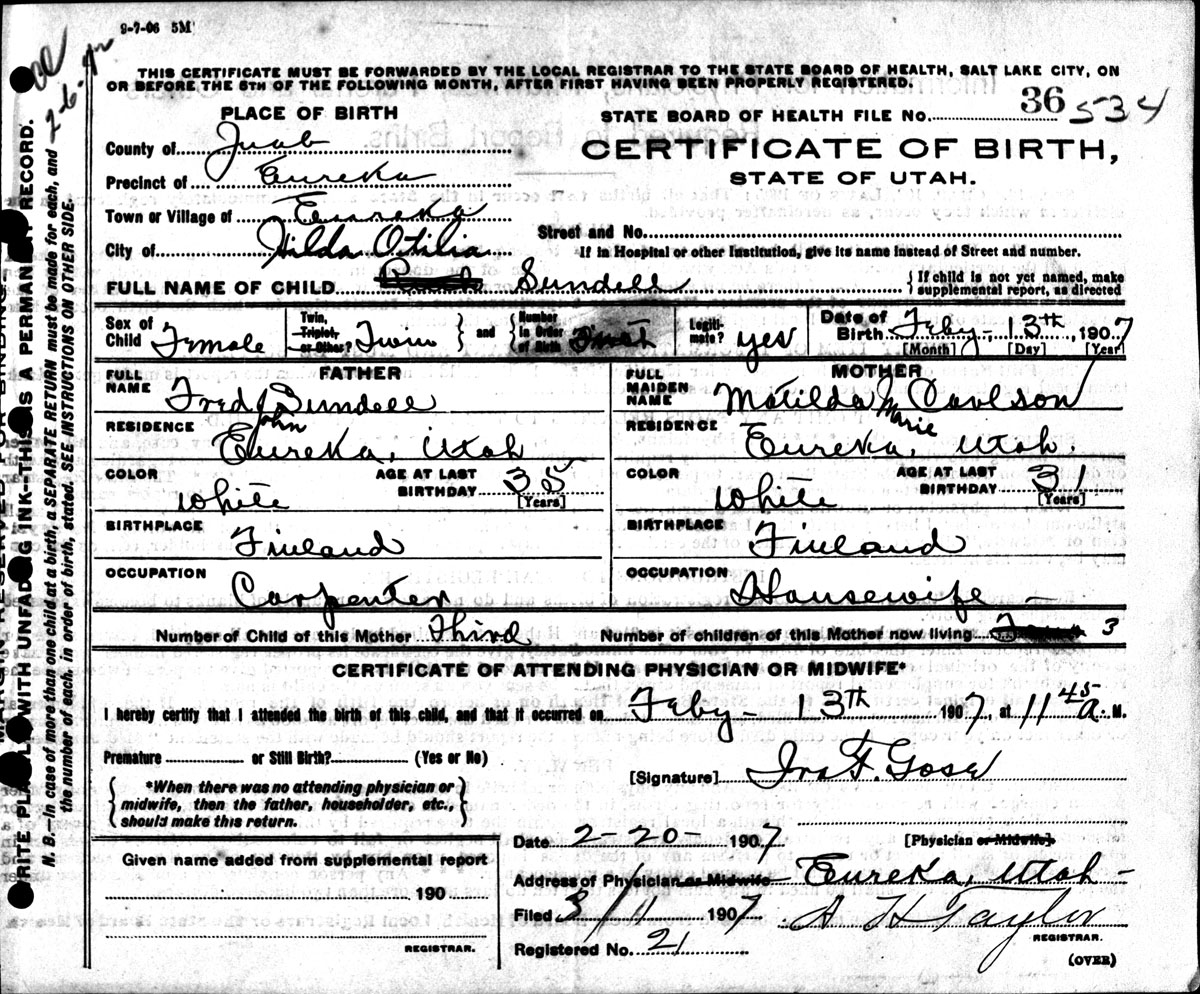 9-7-06 5M
THIS CERTIFICATE MUST BE FORWARDED BY THE LOCAL REGISTRAR TO THE STATE BOARD OF HEALTH, SALT LAKE CITY, ON
OR BEFORE THE 5TH OF THE FOLLOWING MONTH, AFTER FIRST HAVING BEEN PROPERLY REGISTERED.
PLACE OF BIRTH
STATE BOARD OF HEALTH FILE No. 36 534
County of Juab
CERTIFICATE OF BIRTH,
Precinct of Eureka
STATE OF UTAH.
Town or Village of Eureka
Street and No.
City of
If in Hospital or other Institution, give its name instead of Street and number.
Hilda Otilia
FULL NAME OF CHILD Sundell
{If child is not yet named, make supplemental report, as directed
Sex of Child Female
Twin, Triplet, or Other? Twin } and { Number in Order of Birth First
Legitimate? yes
Date of Birth Feby - 13th, 1907
[Month] [Day] [Year]
FATHER
FULL NAME Fred John Sundell
RESIDENCE Eureka, Utah
COLOR White
AGE AT LAST BIRTHDAY 35 [Years]
BIRTHPLACE Finland
OCCUPATION Carpenter
MOTHER
FULL MAIDEN NAME Matilda Marie Carlson
RESIDENCE Eureka, Utah.
COLOR White
AGE AT LAST BIRTHDAY 31 [Years]
BIRTHPLACE Finland
OCCUPATION Housewife -
Number of Child of this Mother Third
Number of children of this Mother now living 3
CERTIFICATE OF ATTENDING PHYSICIAN OR MIDWIFE*
I hereby certify that I attended the birth of this child, and that it occurred on Feby - 13th 1907, at 11 45 a. M.
Premature or Still Birth? (Yes or No)
[Signature] Ira F. Gose
{ *When there was no attending physician or midwife, then the father, householder, etc., should make this return. }
Date 2-20- 1907
[Physician or Midwife]
Given name added from supplemental report
190
REGISTRAR.
Address of Physician or Midwife Eureka, Utah -
Filed 3/11 1907
A H Taylor
REGISTRAR.
Registered No. 21
(OVER)
WRITE PLAINLY WITH UNFADING INK--THIS IS A PERMANENT RECORD.
N. B.--In case of more than one child at a birth, a SEPARATE RETURN must be made for each, and
the number of each, in order of birth, stated. SEE INSTRUCTIONS ON OTHER SIDE.